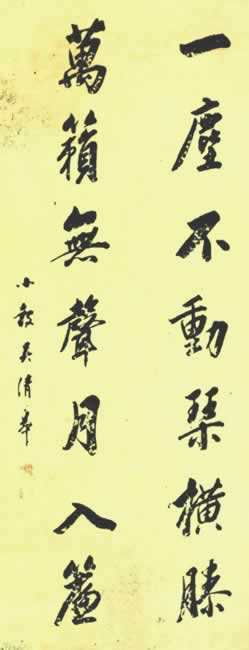 一塵不動琴橫膝
萬籟無聲月入簾
小毅吳清華